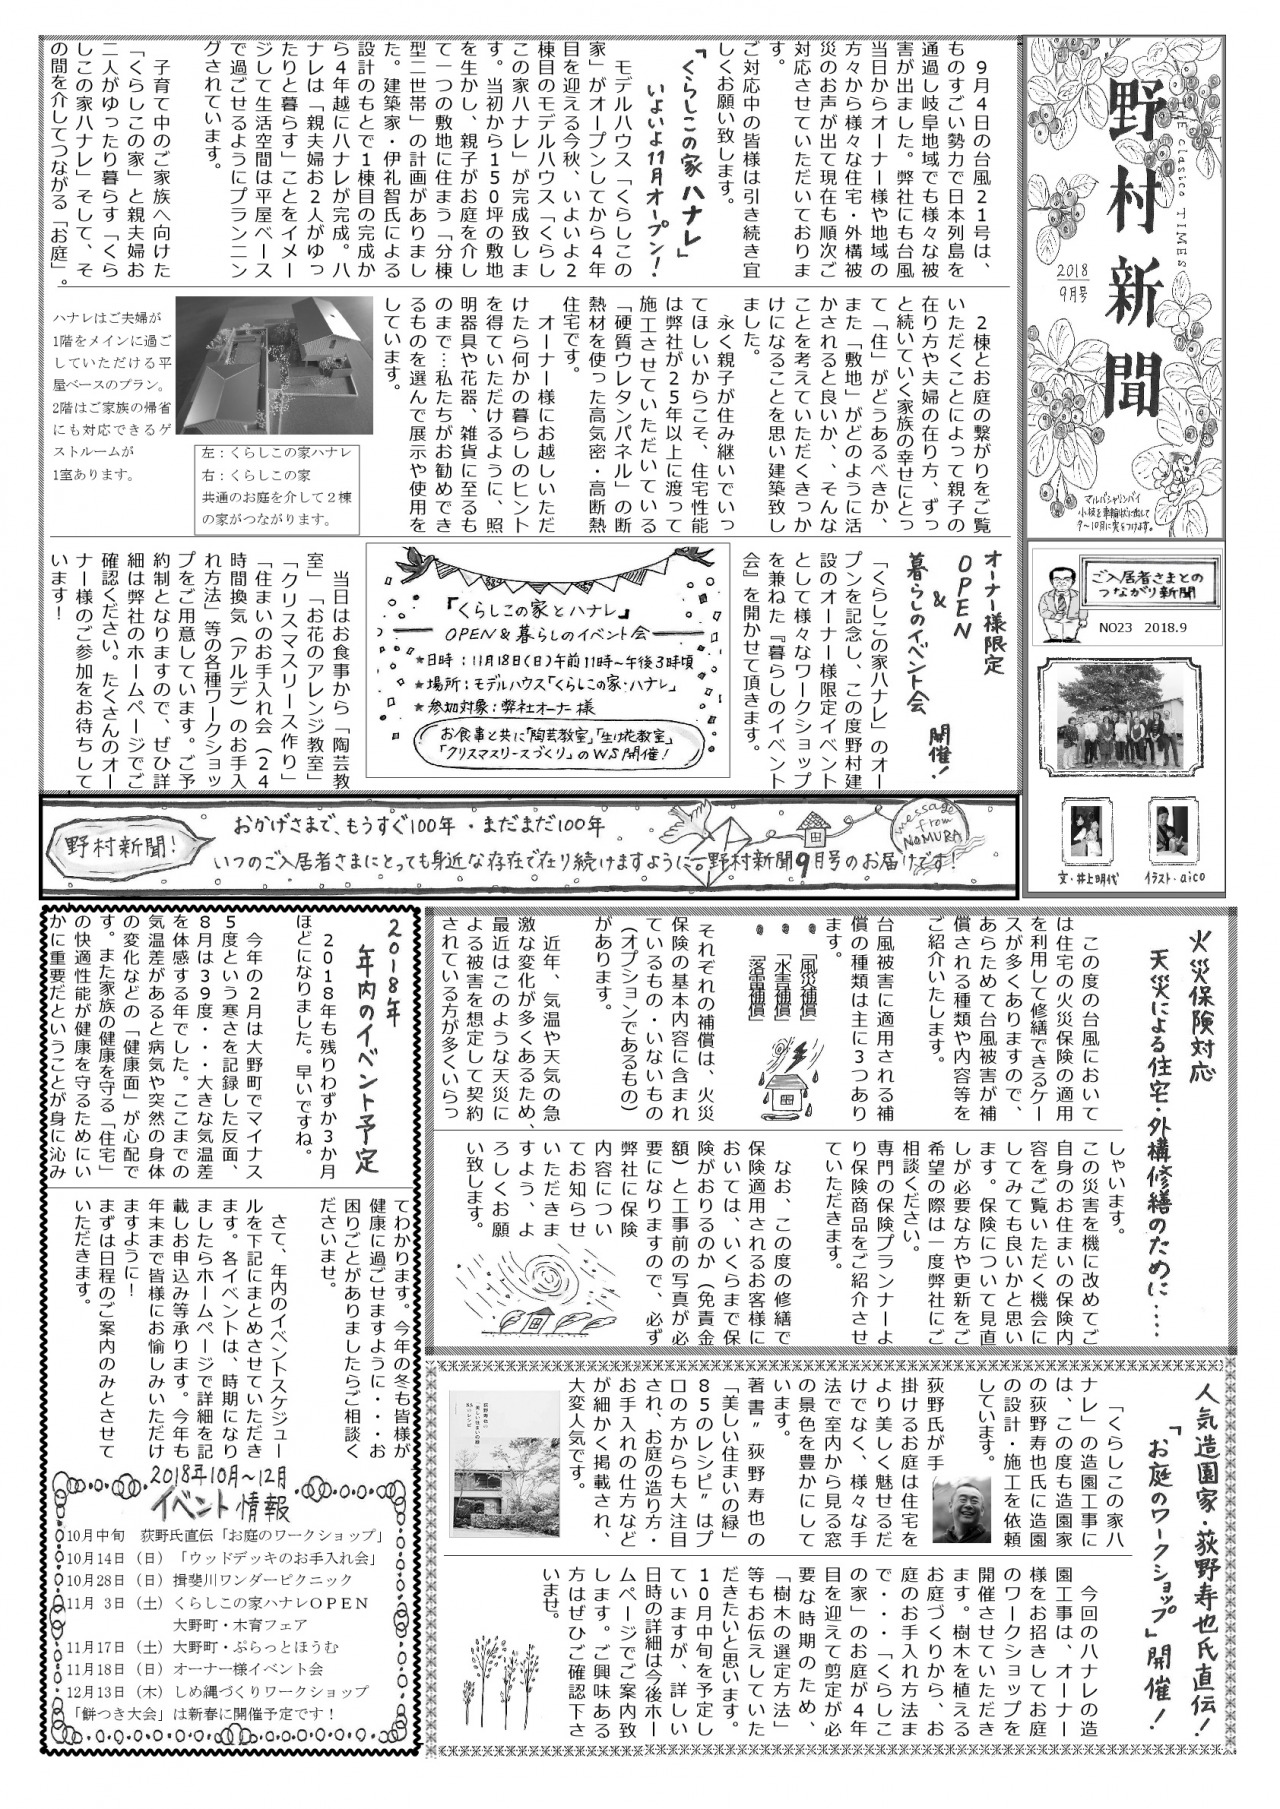 野村新聞
The Clasico TIMES
2018
9月号
マルバシャリンバイ
小枝を車輪状に出して
9〜10月に実をつけます。
ご入居者さまとの
つながり新聞
NO23　2018.9
文・井上明代
イラスト・aico
　9月4日の台風21号は、
ものすごい勢力で日本列島を
通過し岐阜地域でも様々な被
害が出ました。弊社にも台風
当日からオーナー様や地域の
方々から様々な住宅・外構被
災のお声が出て現在も順次ご
対応させていただいておりま
す。
ご対応中の皆様は引き続き宜
しくお願い致します。
「くらしこの家 ハナレ」
いよいよ11月オープン！
　モデルハウス「くらしこの
家」がオープンしてから4年
目を迎える今秋、いよいよ2
棟目のモデルハウス「くらし
この家ハナレ」が完成致しま
す。当初から150坪の敷地
を生かし、親子がお庭を介し
て一つの敷地に住まう「分棟
型二世帯」の計画がありまし
た。建築家・伊礼智氏による
設計のもとで1棟目の完成か
ら4年越にハナレが完成。ハ
ナレは「親夫婦お2人がゆっ
たりと暮らす」ことをイメー
ジして生活空間は平屋ベース
で過ごせるようにプランニン
グされています。
　子育て中のご家族へ向けた
「くらしこの家」と親夫婦お
二人がゆったり暮らす「くら
しこの家ハナレ」そして、そ
の間を介してつながる「お庭」。
　2棟とお庭の繋がりをご覧
いただくことによって親子の
在り方や夫婦の在り方、ずっ
と続いていく家族の幸せにとっ
て「住」がどうあるべきか、
また「敷地」がどのように活
かされると良いか、、そんな
ことを考えていただくきっか
けになることを思い建築致し
ました。
　永く親子が住み継いでいっ
てほしいからこそ、住宅性能
は弊社が25年以上に渡って
施工させていただいている
「硬質ウレタンパネル」の断
熱材を使った高気密・高断熱
住宅です。
　オーナー様にお越しいただ
けたら何かの暮らしのヒント
を得ていただけるように、照
明器具や花器、雑貨に至るも
のまで…私たちがお勧めでき
るものを選んで展示や使用を
しています。
左：くらしこの家ハナレ
右：くらしこの家
共通のお庭を介して2棟
の家がつながります。
ハナレはご夫婦が
1階をメインに過ご
していただける平
屋ベースのプラン。
2階はご家族の帰省
にも対応できるゲ
ストルームが
1室あります。
オーナー様限定
OPEN
&
暮らしのイベント会
開催！
　「くらしこの家ハナレ」のオー
プンを記念し、この度野村建
設のオーナー様限定イベント
として様々なワークショップ
を兼ねた『暮らしのイベント
会』を開かせて頂きます。
『くらしこの家とハナレ』
OPEN&暮らしのイベント会
★日時：11月18日(日)午前11時〜午後3時頃
★場所：モデルハウス「くらしこの家・ハナレ」
★参加対象：弊社オーナー様
お食事と共に「陶芸教室」「生け花教室」
「クリスマスリースづくり」のWS開催！
　当日はお食事から「陶芸教
室」「お花のアレンジ教室」
「クリスマスリース作り」
「住まいのお手入れ会（24
時間換気（アルデ）のお手入
れ方法」等の各種ワークショッ
プをご用意しています。ご予
約制となりますので、ぜひ詳
細は弊社のホームページでご
確認ください。たくさんのオー
ナー様のご参加をお待ちして
います！
野村新聞!
おかげさまで、もうすぐ100年・まだまだ100年
いつのご入居者さまにとっても身近な存在で在り続けますように―野村新聞9月号のお届けです！
message
from
NOMURA
火災保険対応
天災による住宅・外構修繕のために....
　この度の台風において
は住宅の火災保険の適用
を利用して修繕できるケー
スが多くありますので、
あらためて台風被害が補
償される種類や内容等を
ご紹介いたします。
台風被害に適用される補
償の種類は主に3つあり
ます。
●「風災補償」
●「水害補償」
●「落雷補償」
　それぞれの補償は、火災
保険の基本内容に含まれ
ているもの・いないもの
（オプションであるもの）
があります。
　近年、気温や天気の急
激な変化が多くあるため、
最近はこのような天災に
よる被害を想定して契約
されている方が多くいらっ
しゃいます。
この災害を機に改めてご
自身のお住まいの保険内
容をご覧いただく機会に
してみても良いかと思い
ます。保険について見直
しが必要な方や更新をご
希望の際は一度弊社にご
相談ください。
専門の保険プランナーよ
り保険商品をご紹介させ
ていただきます。
　なお、この度の修繕で
保険適用されるお客様に
おいては、いくらまで保
険がおりるのか（免責金
額）と工事前の写真が必
要になりますので、必ず
弊社に保険
内容につい
てお知らせ
いただきま
すよう、よ
ろしくお願
い致します。
2018年
年内のイベント予定
　2018年も残りわずか3か月
ほどになりました。早いですね。
　今年の2月は大野町でマイナス
5度という寒さを記録した反面、
8月は39度・・・大きな気温差
を体感する年でした。ここまでの
気温差があると病気や突然の身体
の変化などの「健康面」が心配で
す。また家族の健康を守る「住宅」
の快適性能が健康を守るためにい
かに重要だということが身に沁み
てわかります。今年の冬も皆様が
健康に過ごせますように・・・お
困りごとがありましたらご相談く
ださいませ。
　さて、年内のイベントスケジュー
ルを下記にまとめさせていただき
ます。各イベントは、時期になり
ましたらホームページで詳細を記
載しお申込み等承ります。今年も
年末まで皆様にお愉しみいただけ
ますように！
まずは日程のご案内のみとさせて
いただきます。
2018年10月〜12月
イベント情報
10月中旬　荻野氏直伝「お庭のワークショップ」
10月14日（日）「ウッドデッキのお手入れ会」
10月28日（日）揖斐川ワンダーピクニック
11月 3日（土）くらしこの家ハナレOPEN
大野町・木育フェア
11月17日（土）大野町・ぷらっとほうむ
11月18日（日）オーナー様イベント会
12月13日（木）しめ縄づくりワークショップ
「餅つき大会」は新春に開催予定です！
人気造園家・荻野寿也氏直伝！
「お庭のワークショップ」開催！
　「くらしこの家ハ
ナレ」の造園工事に
は、この度も造園家
の荻野寿也氏に造園
の設計・施工を依頼
しています。
荻野氏が手
掛けるお庭は住宅を
より美しく魅せるだ
けでなく、様々な手
法で室内から見る窓
の景色を豊かにして
います。
著書”荻野寿也の
「美しい住まいの緑」
85のレシピ”はプ
ロの方からも大注目
され、お庭の造り方・
お手入れの仕方など
が細かく掲載され、
大変人気です。
　今回のハナレの造
園工事は、オーナー
様をお招きしてお庭
のワークショップを
開催させていただき
ます。樹木を植える
お庭づくりから、お
庭のお手入れ方法ま
で・・・「くらしこ
の家」のお庭が4年
目を迎えて剪定が必
要な時期のため、
「樹木の選定方法」
等もお伝えしていた
だきたいと思います。
10月中旬を予定し
ていますが、詳しい
日時の詳細は今後ホー
ムページでご案内致
します。ご興味ある
方はぜひご確認下さ
いませ。